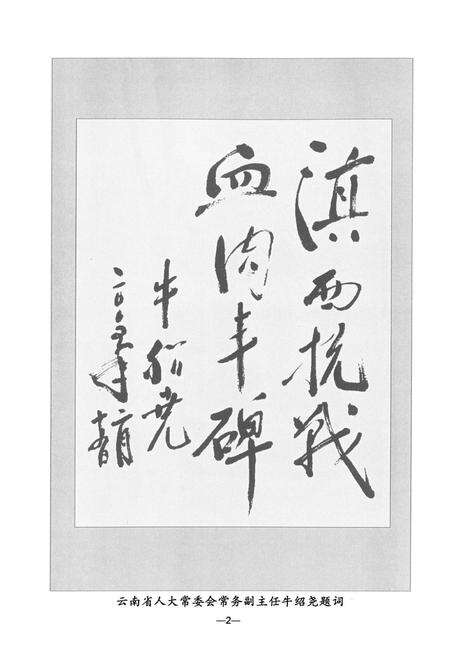 滇西抗战
血肉丰碑
牛绍尧
云南省人大常委会常务副主任牛绍尧题词
—2—